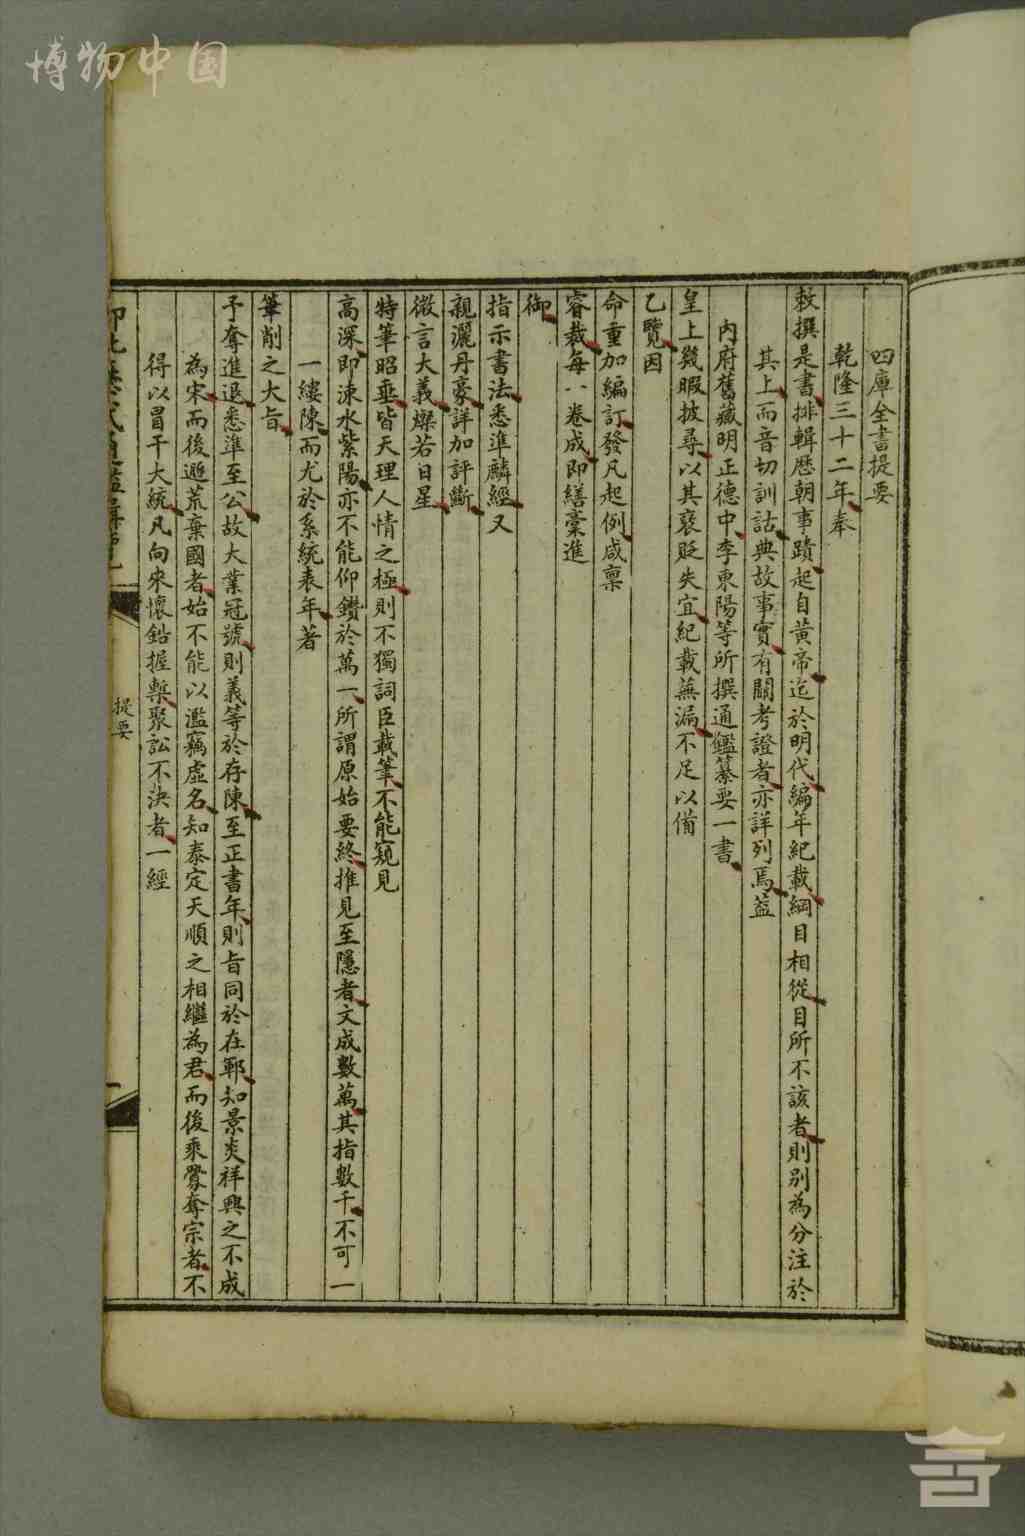 博物中国
四庫全書提要
乾隆三十二年奉
敕撰是書排輯歷朝事蹟起自黃帝迄於明代編年紀載綱目相從目所不該者則別為分注於
其上而音切訓詁典故事實有關考證者亦詳列焉蓋
內府舊藏明正德中李東陽等所撰通鑑纂要一書
皇上幾暇披尋以其褒貶失宜紀載蕪漏不足以備
乙覽因
命重加編訂發凡起例咸稟
睿裁每一卷成即繕稾進
御
指示書法悉準麟經又
親灑丹豪詳加評斷
微言大義燦若日星
特筆昭垂皆天理人情之極則不獨詞臣載筆不能窺見
高深即涑水紫陽亦不能仰鑽於萬一所謂原始要終推見至隱者文成數萬其指數千不可一
一縷陳而尤於系統表年著
筆削之大旨
予奪進退悉準至公故大業冠號則義等於存陳至正書年則旨同於在鄆知景炎祥興之不成
為宋而後遯荒棄國者始不能以濫竊虛名知泰定天順之相繼為君而後乘釁奪宗者不
得以冒干大統凡向來懷鉛握槧聚訟不決者一經
提要
一